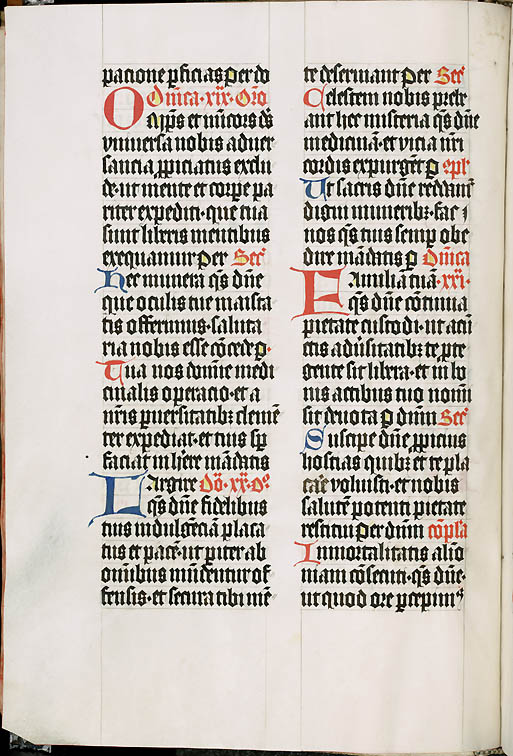 pacione p̄ficias per do
Dn̄ica xix Or̄o
Omp̄s et mīcors ds̄
vniuersa nobis aduer
santia p̱piciatus exclu
de· ut mente et corꝑe pa
riter expediti· que tua
sunt liberis mentibus
exequamur per Sec̄
Hec munera qs̄ dn̄e
que oculis tue maiesta
tis offerimus· saluta
ria nobis esse cōcede ꝑ·
Tua nos domine medi
cinalis operacio· et a
nr̄is ꝑuersitatibꝫ clemē
ter expediat· et tuis sꝑ
faciat īherere mādatis
Largire Dō· xx· Oō
qs̄ dn̄e fidelibus
tuis indulgēciā placa
tus et pacē· ut ꝑiter ab
om̄ibus mūdentur of
fensis· et secura tibi mē
te deseruiant per Sec̄
Celestem nobis prebe
ant hec misteria qs̄ dn̄e
medicinā· et vicia nr̄i
cordis expurgēt ꝑ ꝯpl̄
Ut sacris dn̄e reddam̄
digni muneribꝫ· fac
nos qs̄ tuis semꝑ obe
dire mādatis ꝑ Dn̄ica
Familiā tuā· xxi·
qs̄ dn̄e cōtinua
pietate custodi· ut a cū
ctis aduˀsitatibꝫ te ꝓte
gente sit libera· et in bo
nis actibus tuo nomī
sit deuota ꝑ dn̄um Sec̄
Suscipe dn̄e ꝓpicius
hostias quibꝫ et te pla
cari voluisti· et nobis
salutē potenti pietate
restitui per dn̄m cōpl̄a
Immortalitatis alīo
niam cōsecuti· qs̄ dn̄e·
ut quod ore ꝑcepimꝰ